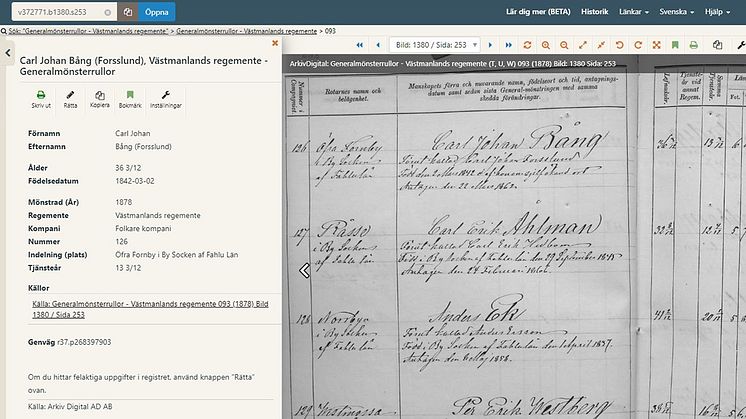 v372771.b1380.s253
Öppna
Lär dig mer (BETA)
Historik
Länkar
Svenska
Hjälp
Sök: "Generalmönsterrullor - Västmanlands regemente" > Generalmönsterrullor - Västmanlands regemente > 093
Carl Johan Bång (Forsslund), Västmanlands regemente - Generalmönsterrullor
Skriv ut
Rätta
Kopiera
Bokmärk
Inställningar
Förnamn Carl Johan
Efternamn Bång (Forsslund)
Ålder 36 3/12
Födelsedatum 1842-03-02
Mönstrad (År) 1878
Regemente Västmanlands regemente
Kompani Folkare kompani
Nummer 126
Indelning (plats) Öfra Fornby i By Socken af Fahlu Län
Tjänsteår 13 3/12
Källor
Källa: Generalmönsterrullor - Västmanlands regemente 093 (1878) Bild
1380 / Sida 253
Genväg r37.p268397903
Om du hittar felaktiga uppgifter i registret, använd knappen "Rätta"
ovan.
Källa: Arkiv Digital AD AB
Bild: 1380 / Sida: 253
ArkivDigital: Generalmönsterrullor - Västmanlands regemente (T, U, W) 093 (1878) Bild: 1380 Sida: 253
Nummer i Compagniet.
Rotarnes namn och
belägenhet.
Manskapets förra och nuvarande namn, födelseort och tid, antagnings-
datum samt sedan sista General-mönstringen med samma
skedda förändringar.
Lefnadsår.
Summa
Fot.
126 Öfra Fornby
i By Socken
af Fahlu län
Carl Johan Bång
Förut kallad Carl Johan Forsslund
127 Råsso
i By Socken
af Fahlu län
Carl Erik Ahlman
Förut kallad Carl Erik
Född i By Socken af Fahlu län den 29 September 1845
128 Norrbyn
i By Socken
af Fahlu län
Anders Ek
Förut kallad Anders Ersson
Född i By Socken af Fahlu län den 1 April 1837.
Antagen den 6 May 1858.
129
Per Erik Westberg